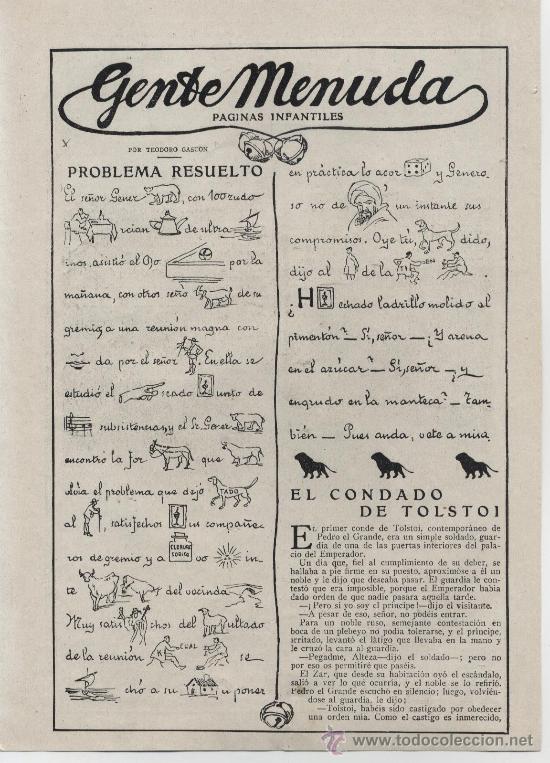 Gente Menuda
PAGINAS INFANTILES
POR TEODORO GASCÓN
PROBLEMA RESUELTO
El señor Gener , con 100zudo
rcian de ultra
inos, asistió al Ojo por la
mañana, con otros seño de su
gremio, a una reunión magna con
da por el señor . En ella se
estudió el seado unto de
subsistencias, y el Sr. Gener
encontró la For que
olvia el problema que dejó TADO
al , satisfechos un compañe-
CLORURO SODICO
ros de gremio y a vo in-
te del vecinda
Muy satis chos del ultado
CUAL
de la reunión se
chó a su y poner
en práctica lo acor y Genero-
so no de un instante sus
compromisos. Oye tú, dido,
dijo al de la TI EN
¿H echado ladrillo molido al
pimentón? — Sí, señor — ¿Y arena
en el azúcar? — Sí, señor — ¿y
engrudo en la manteca? — Tam-
bién — Pues anda, vete a misa.
EL CONDADO
DE TOLSTOI
El primer conde de Tolstoi, contemporáneo de
Pedro el Grande, era un simple soldado, guar-
dia de una de las puertas interiores del pala-
cio del Emperador.
Un día que, fiel al cumplimiento de su deber, se
hallaba a pie firme en su puesto, aproximóse a él un
noble y le dijo que deseaba pasar. El guardia le contes-
tó que era imposible, porque el Emperador había
dado orden de que nadie pasara aquella tarde.
—¡Pero si yo soy el príncipe!—dijo el visitante.
—A pesar de eso, señor, no podéis entrar.
Para un noble ruso, semejante contestación en
boca de un plebeyo no podía tolerarse, y el príncipe,
irritado, levantó el látigo que llevaba en la mano y
le cruzó la cara al guardia.
—Pegadme, Alteza—dijo el soldado—; pero no
por eso os permitiré que paséis.
El Zar, que desde su habitación oyó el escándalo,
salió a ver lo que ocurría, y el noble se lo refirió.
Pedro el Grande escuchó en silencio; luego, volvién-
dose al guardia, le dijo:
—Tolstoi, habéis sido castigado por obedecer
una orden mía. Como el castigo es inmerecido,
www.todocoleccion.net